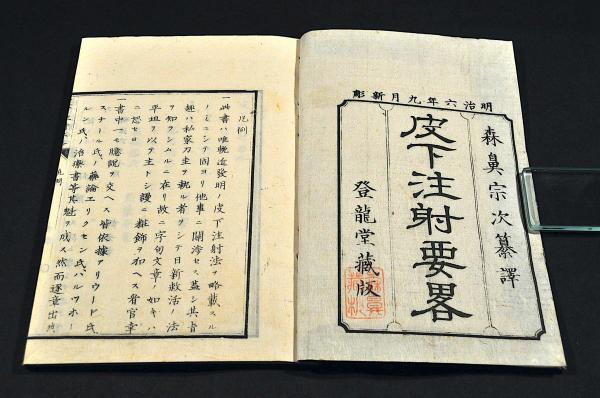 明治六年九月新彫
森鼻宗次纂譯
皮下注射要畧
登龍堂藏版
凡例
一此書ハ唯輓近發明ノ皮下注射法ヲ略載スル
ノミニシテ固ヨリ他事ニ關渉セス蓋シ其旨
趣ハ私家刀圭ヲ執ル者ヲシテ日新救活ノ法
ヲ知ラシムルニ在リ故ニ字句文章ノ如キハ
平坦ヲ以テ主トシ謾ニ粧飾ヲ加ヘス看官幸
ニ恕セヨ
一書中一モ臆説ヲ交ヘス皆依據アリウード氏
スナール氏ノ藥論エリクセン氏ハルツホー
ルン氏ノ治療書等其魁ヲ成ス然而逐章出所